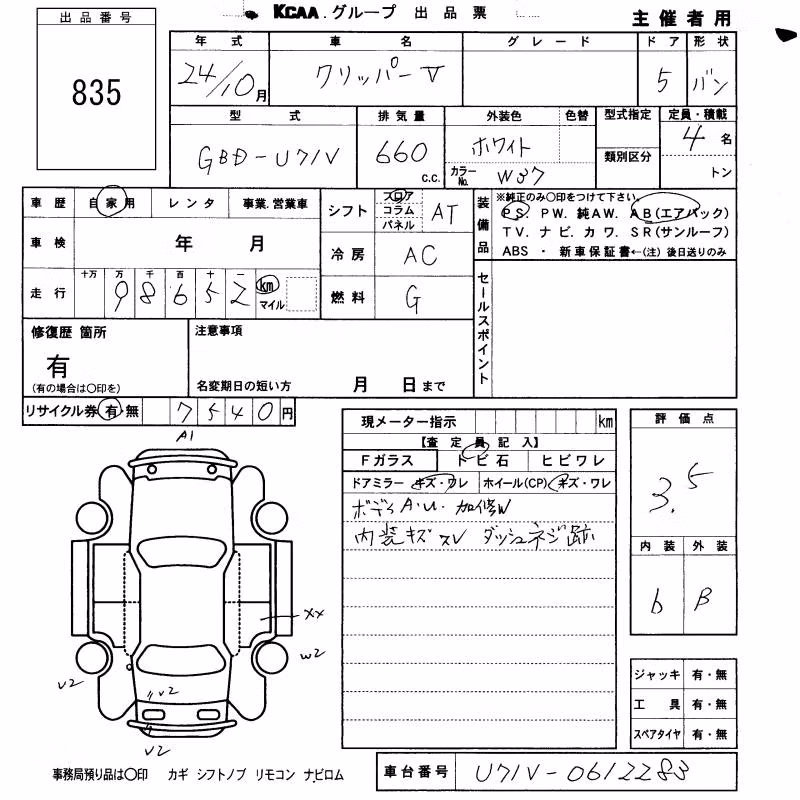 KCAA グループ 出品票
主催者用
出品番号
835
年式 車名 グレード ドア 形状
24/10月 クリッパーV 5 バン
型式 排気量 外装色 色替 型式指定 定員・積載
GBD-U71V 660 c.c. ホワイト 類別区分 4名
カラーNo. W37 トン
車歴 自家用 レンタ 事業.営業車
シフト フロア コラム パネル AT
装備品 ※純正のみ〇印をつけて下さい。
PS. PW. 純AW. AB(エアバック)
TV. ナビ. カワ. SR(サンルーフ)
ABS ・ 新車保証書←(注) 後日送りのみ
車検 年 月
冷房 AC
走行 十万 万 千 百 十 一
98652 km マイル
燃料 G
セールスポイント
修復歴 箇所
有
(有の場合は〇印を)
注意事項
名変期日の短い方 月 日まで
リサイクル券 有・無 7540円
現メーター指示 km
【査定員記入】
Fガラス トビ石 ヒビワレ
ドアミラー キズ・ワレ ホイール(CP) キズ・ワレ
ボディA.U. 加修W
内装キズ スレ ダッシュネジ跡
評価点
3.5
内装 外装
b B
A1
XX
W2
V2
V2
V2
ジャッキ 有・無
工具 有・無
スペアタイヤ 有・無
事務局預り品は〇印 カギ シフトノブ リモコン ナビロム
車台番号 U71V-0612283